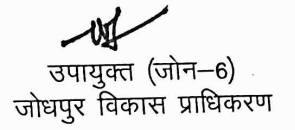 उपायुक्त (जोन–6)
जोधपुर विकास प्राधिकरण